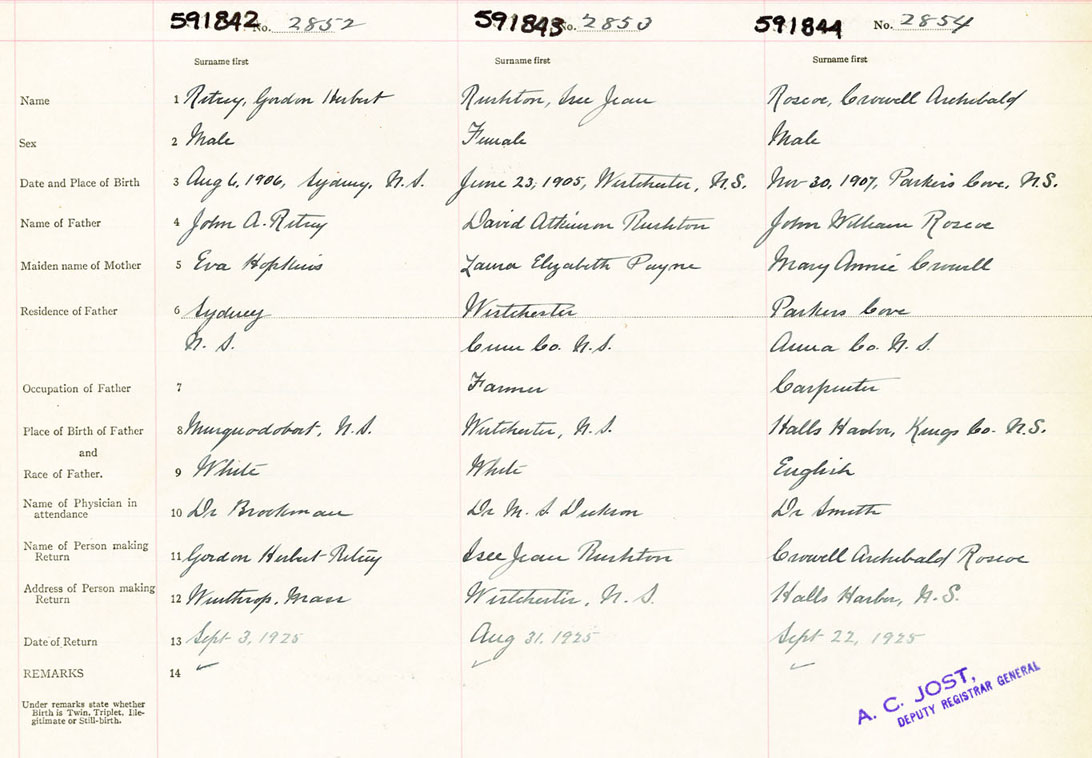 591842 No. 2852 591843 No. 2853 591844 No. 2854
Surname first Surname first Surname first
Name 1 Ritcey, Gordon Herbert Rushton, Jean Roscoe, Crowell Archibald
Sex 2 Male Female Male
Date and Place of Birth 3 Aug 6, 1906, Sydney, N.S. June 23, 1905, Westchester, N.S. Nov 30, 1907, Parkers Cove, N.S.
Name of Father 4 John A. Ritcey David Atkinson Rushton John William Roscoe
Maiden name of Mother 5 Eva Hopkins Laura Elizabeth Payne Mary Annie Crowell
Residence of Father 6 Sydney Westchester Parkers Cove
N. S. Cum Co. N.S. Anna Co. N.S.
Occupation of Father 7 Farmer Carpenter
Place of Birth of Father 8 Musquodoboit, N.S. Westchester, N.S. Halls Harbor, Kings Co. N.S.
and
Race of Father. 9 White White English
Name of Physician in
attendance 10 Dr Brookman Dr M. S. Dickson Dr Smith
Name of Person making
Return 11 Gordon Herbert Ritcey Jean Rushton Crowell Archibald Roscoe
Address of Person making
Return 12 Winthrop, Mass Westchester, N.S. Halls Harbor, N.S.
Date of Return 13 Sept 3, 1925 Aug 31, 1925 Sept 22, 1925
REMARKS 14
Under remarks state whether
Birth is Twin, Triplet, Ille-
gitimate or Still-birth.
A. C. JOST,
DEPUTY REGISTRAR GENERAL